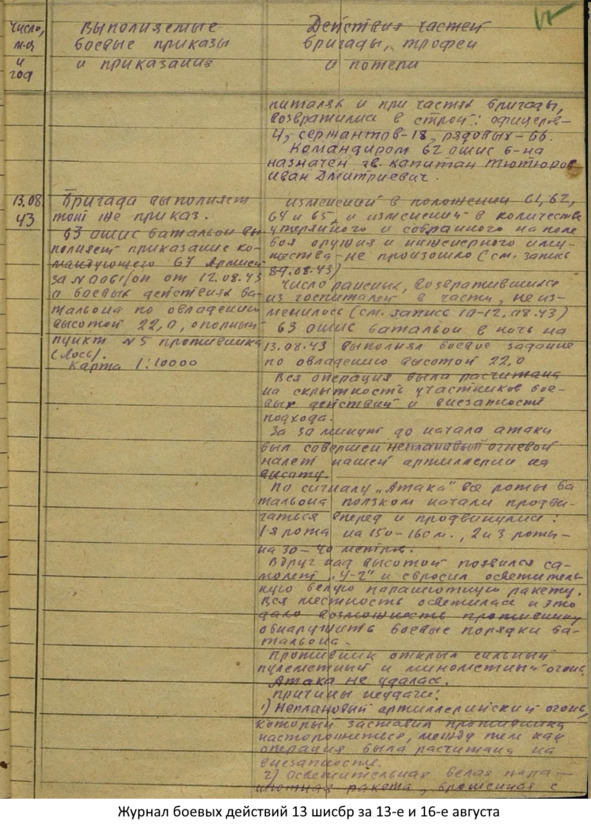 Число,
м-ц
и
год
Выполняемые
боевые приказы
и приказания
Действия частей
бригады, трофеи
и потери
питалях и при частях бригады,
возвратились в строй: офицеров-
4, сержантов-18, рядовых-66.
Командиром 62 ошис б-на
назначен гв. капитан Тютюров
Иван Дмитриевич.
13.08.
43
Бригада выполняет
тот же приказ.
63 ошис батальон вы-
полняет приказание ко-
мандующего 67 Армией
за № 0061/оп от 12.08.43
о боевых действиях ба-
тальона по овладению
высотой 22,0, опорный
пункт №5 противника
(Лось).
Карта 1:10000
Изменений в положении 61, 62,
64 и 65, и изменений в количестве
утерянного и собранного на поле
боя оружия и инженерного иму-
щества не произошло (см. запись
89.08.43)
Число раненых, возвратившихся
из госпиталей в части, не из-
менилось (см. запись 10-12.08.43)
63 ошис батальон в ночь на
13.08.43 выполнял боевое задание
по овладению высотой 22,0
Вся операция была расчитана
на скрытность участников бое-
вых действий и внезапности
подхода.
За 30 минут до начала атаки
был совершен неплановый огневой
налет нашей артиллерии на
высоту.
По сигналу „Атака" все роты ба-
тальона ползком начали продви-
гаться вперед и продвинулись:
1я рота на 150-160 м., 2 и 3 роты-
на 30-40 метров.
Вдруг над высотой появился са-
молет „У-2" и сбросил осветитель-
ную белую парашютную ракету.
Вся местность осветилась и это
дало возможность противнику
обнаружить боевые порядки ба-
тальона.
Противник открыл сильный
пулеметный и минометный огонь.
Атака не удалась.
Причины неудачи:
1) Неплановый артиллерийский огонь,
который заставил противника
насторожиться, между тем как
операция была расчитана на
внезапность.
2) Осветительная белая пара-
шютная ракета, брошенная с
Журнал боевых действий 13 шисбр за 13-е и 16-е августа